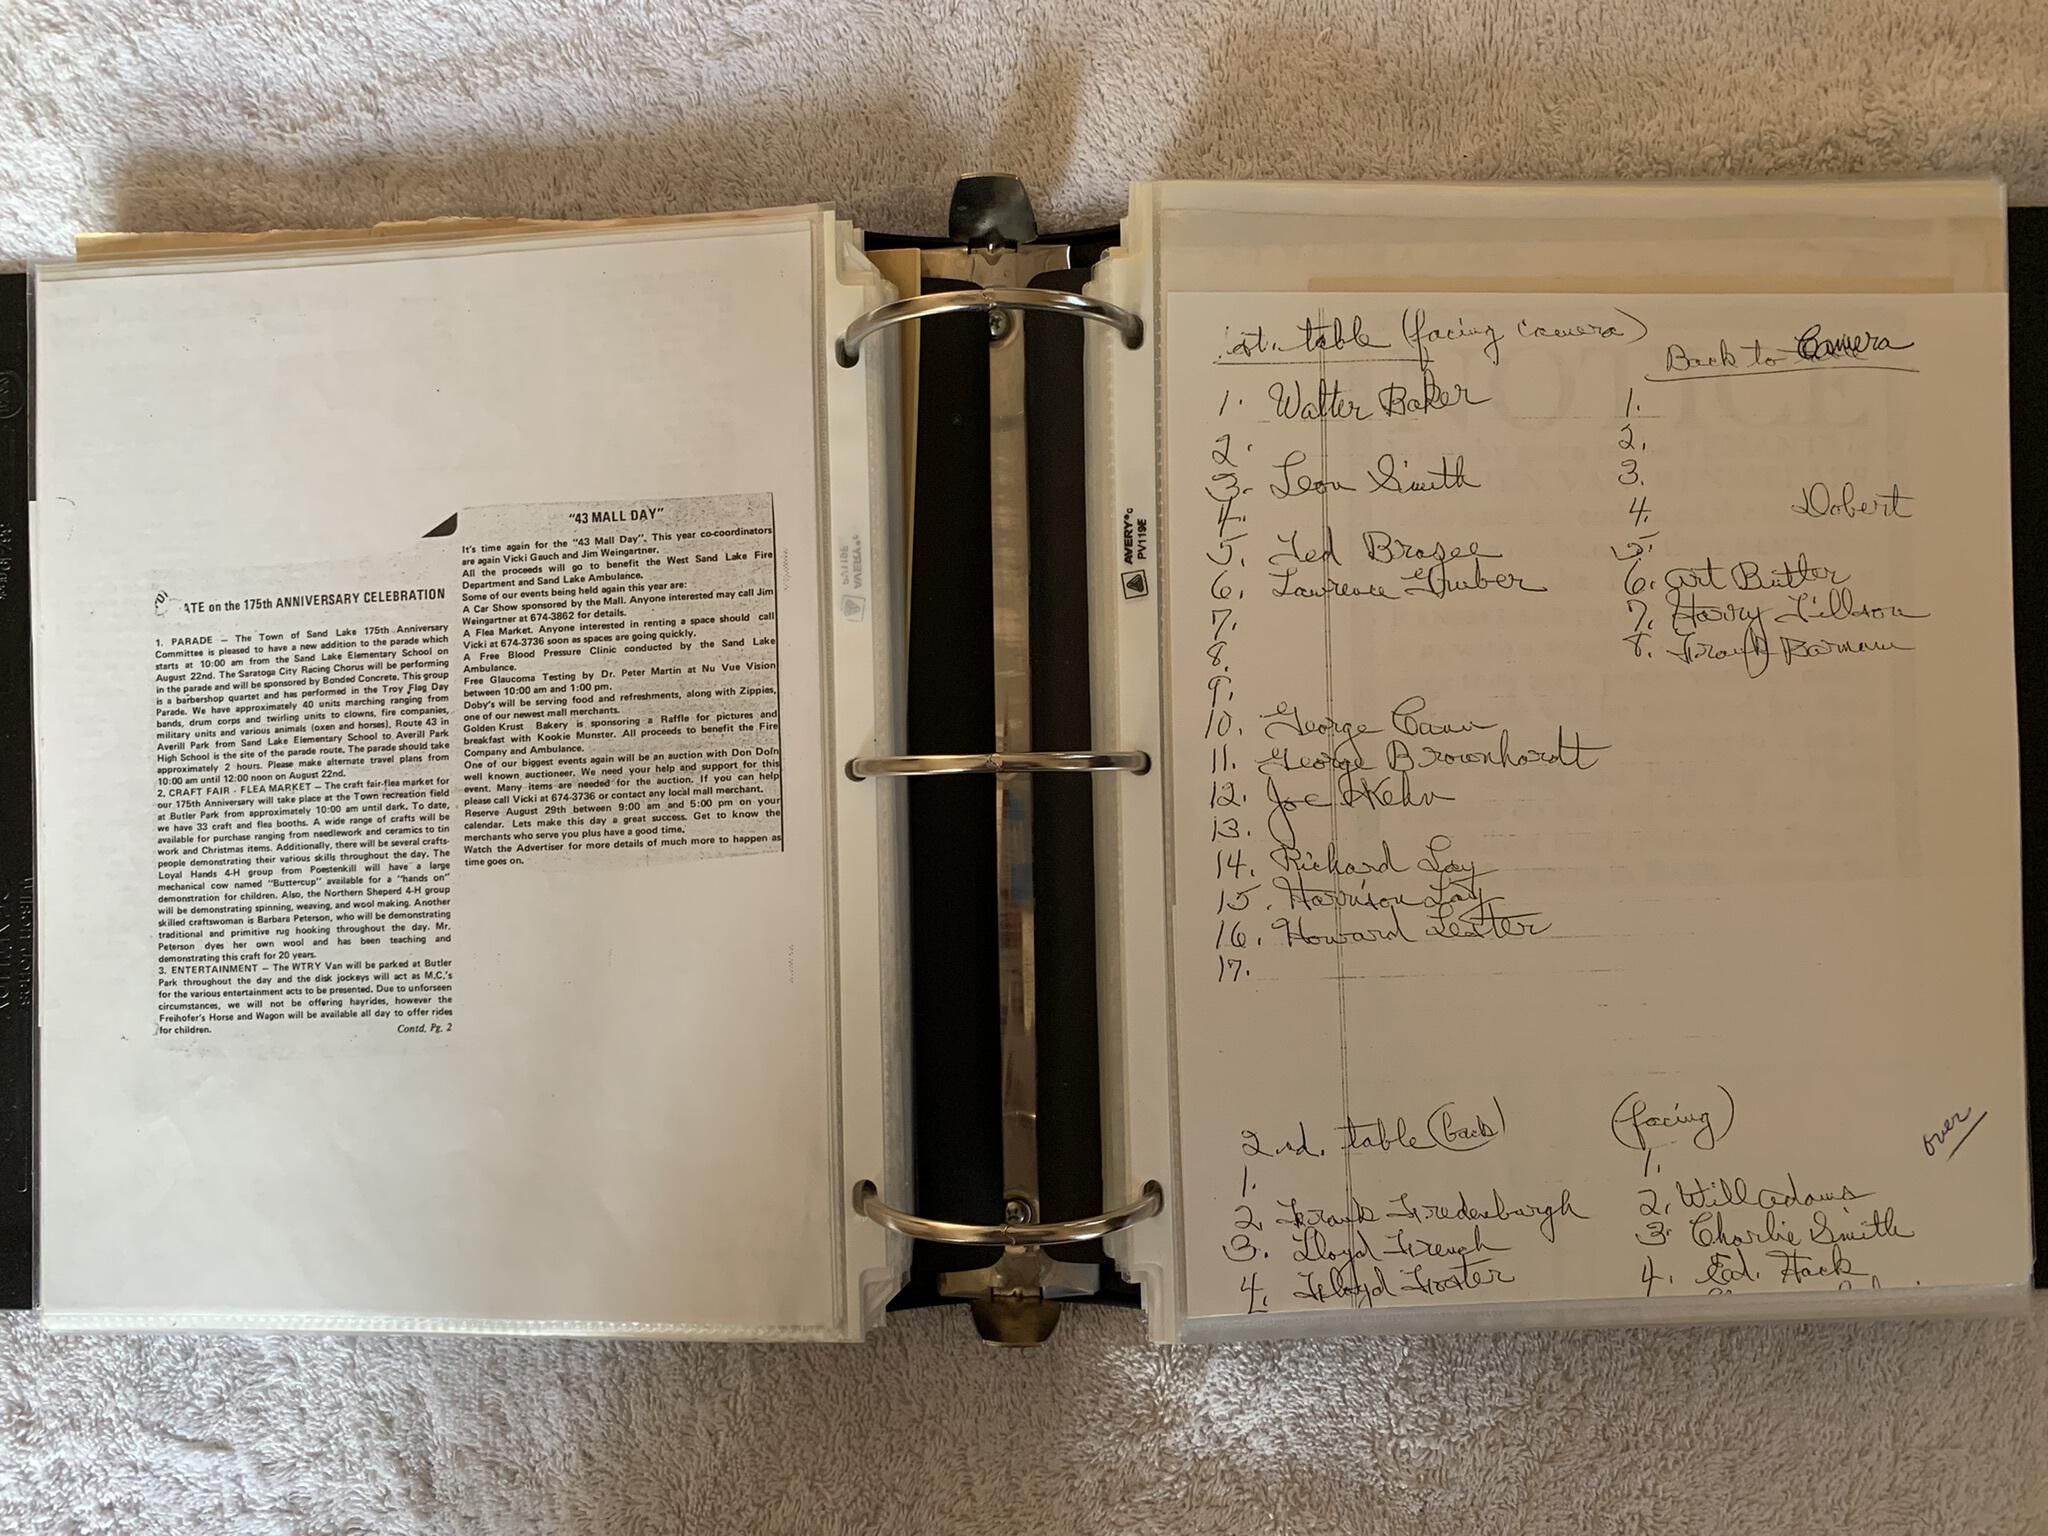 ATE on the 175th ANNIVERSARY CELEBRATION
1. PARADE — The Town of Sand Lake 175th Anniversary
Committee is pleased to have a new addition to the parade which
starts at 10:00 am from the Sand Lake Elementary School on
August 22nd. The Saratoga City Racing Chorus will be performing
in the parade and will be sponsored by Bonded Concrete. This group
is a barbershop quartet and has performed in the Troy Flag Day
Parade. We have approximately 40 units marching ranging from
bands, drum corps and twirling units to clowns, fire companies,
military units and various animals (oxen and horses). Route 43 in
Averill Park from Sand Lake Elementary School to Averill Park
High School is the site of the parade route. The parade should take
approximately 2 hours. Please make alternate travel plans from
10:00 am until 12:00 noon on August 22nd.
2. CRAFT FAIR - FLEA MARKET — The craft fair-flea market for
our 175th Anniversary will take place at the Town recreation field
at Butler Park from approximately 10:00 am until dark. To date,
we have 33 craft and flea booths. A wide range of crafts will be
available for purchase ranging from needlework and ceramics to tin
work and Christmas items. Additionally, there will be several crafts-
people demonstrating their various skills throughout the day. The
Loyal Hands 4-H group from Poestenkill will have a large
mechanical cow named "Buttercup" available for a "hands on"
demonstration for children. Also, the Northern Sheperd 4-H group
will be demonstrating spinning, weaving, and wool making. Another
skilled craftswoman is Barbara Peterson, who will be demonstrating
traditional and primitive rug hooking throughout the day. Mr.
Peterson dyes her own wool and has been teaching and
demonstrating this craft for 20 years.
3. ENTERTAINMENT — The WTRY Van will be parked at Butler
Park throughout the day and the disk jockeys will act as M.C.'s
for the various entertainment acts to be presented. Due to unforseen
circumstances, we will not be offering hayrides, however the
Freihofer's Horse and Wagon will be available all day to offer rides
for children.
Contd. Pg. 2
"43 MALL DAY"
It's time again for the "43 Mall Day". This year co-coordinators
are again Vicki Gauch and Jim Weingartner.
All the proceeds will go to benefit the West Sand Lake Fire
Department and Sand Lake Ambulance.
Some of our events being held again this year are:
A Car Show sponsored by the Mall. Anyone interested may call Jim
Weingartner at 674-3862 for details.
A Flea Market. Anyone interested in renting a space should call
Vicki at 674-3736 soon as spaces are going quickly.
A Free Blood Pressure Clinic conducted by the Sand Lake
Ambulance.
Free Glaucoma Testing by Dr. Peter Martin at Nu Vue Vision
between 10:00 am and 1:00 pm.
Doby's will be serving food and refreshments, along with Zippies,
one of our newest mall merchants.
Golden Krust Bakery is sponsoring a Raffle for pictures and
breakfast with Kookie Munster. All proceeds to benefit the Fire
Company and Ambulance.
One of our biggest events again will be an auction with Don Doln
well known auctioneer. We need your help and support for this
event. Many items are needed for the auction. If you can help
please call Vicki at 674-3736 or contact any local mall merchant.
Reserve August 29th between 9:00 am and 5:00 pm on your
calendar. Lets make this day a great success. Get to know the
merchants who serve you plus have a good time.
Watch the Advertiser for more details of much more to happen as
time goes on.
AVERY®
PV119E
table (facing camera)
1. Walter Baker
2.
3. Leon Smith
4.
5. Ted Brasee
6. Lawrence Gruber
7.
8.
9.
10. George Cann
11. George Brownhardt
12. Joe Kehn
13.
14. Richard Lay
15. Harrison Lay
16. Howard Lester
17.
Back to Camera
1.
2.
3.
4. Dobert
5.
6. Art Butler
7. Harry Tillson
8. Frank Barmann
2nd. table (back)
1.
2. Frank Fredenburgh
3. Lloyd French
4. Floyd Foster
(facing)
1.
2. Will Adams
3. Charlie Smith
4. Ed. Hack
over